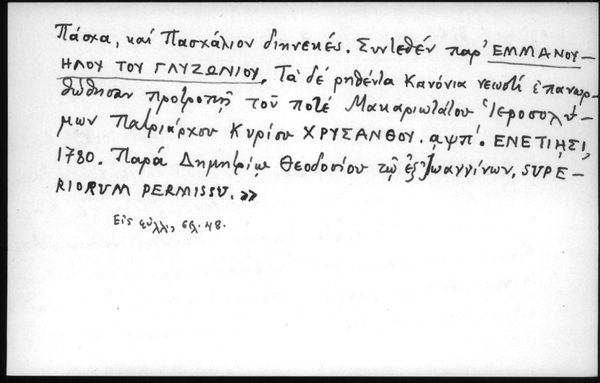 Πάσχα, καί Πασχάλιον διηνεκές. Συντεθέν παρ' ΕΜΜΑΝΟΥ-
ΗΛΟΥ ΤΟΥ ΓΛΥΖΩΝΙΟΥ. Τά δέ ρηθέντα Κανόνια νεωστί ἐπανωρ-
θώθησαν προτροπῇ τοῦ ποτέ Μακαριωτάτου Ἱεροσολύ-
μων Πατριάρχου Κυρίου ΧΡΥΣΑΝΘΟΥ. αψπ'. ΕΝΕΤΙῌΣΙ,
1780. Παρά Δημητρίῳ Θεοδοσίου τῷ ἐξ Ἰωαννίνων. SUPE-
RIORUM PERMISSU. »
Εἰς φύλλ., σελ. 48.